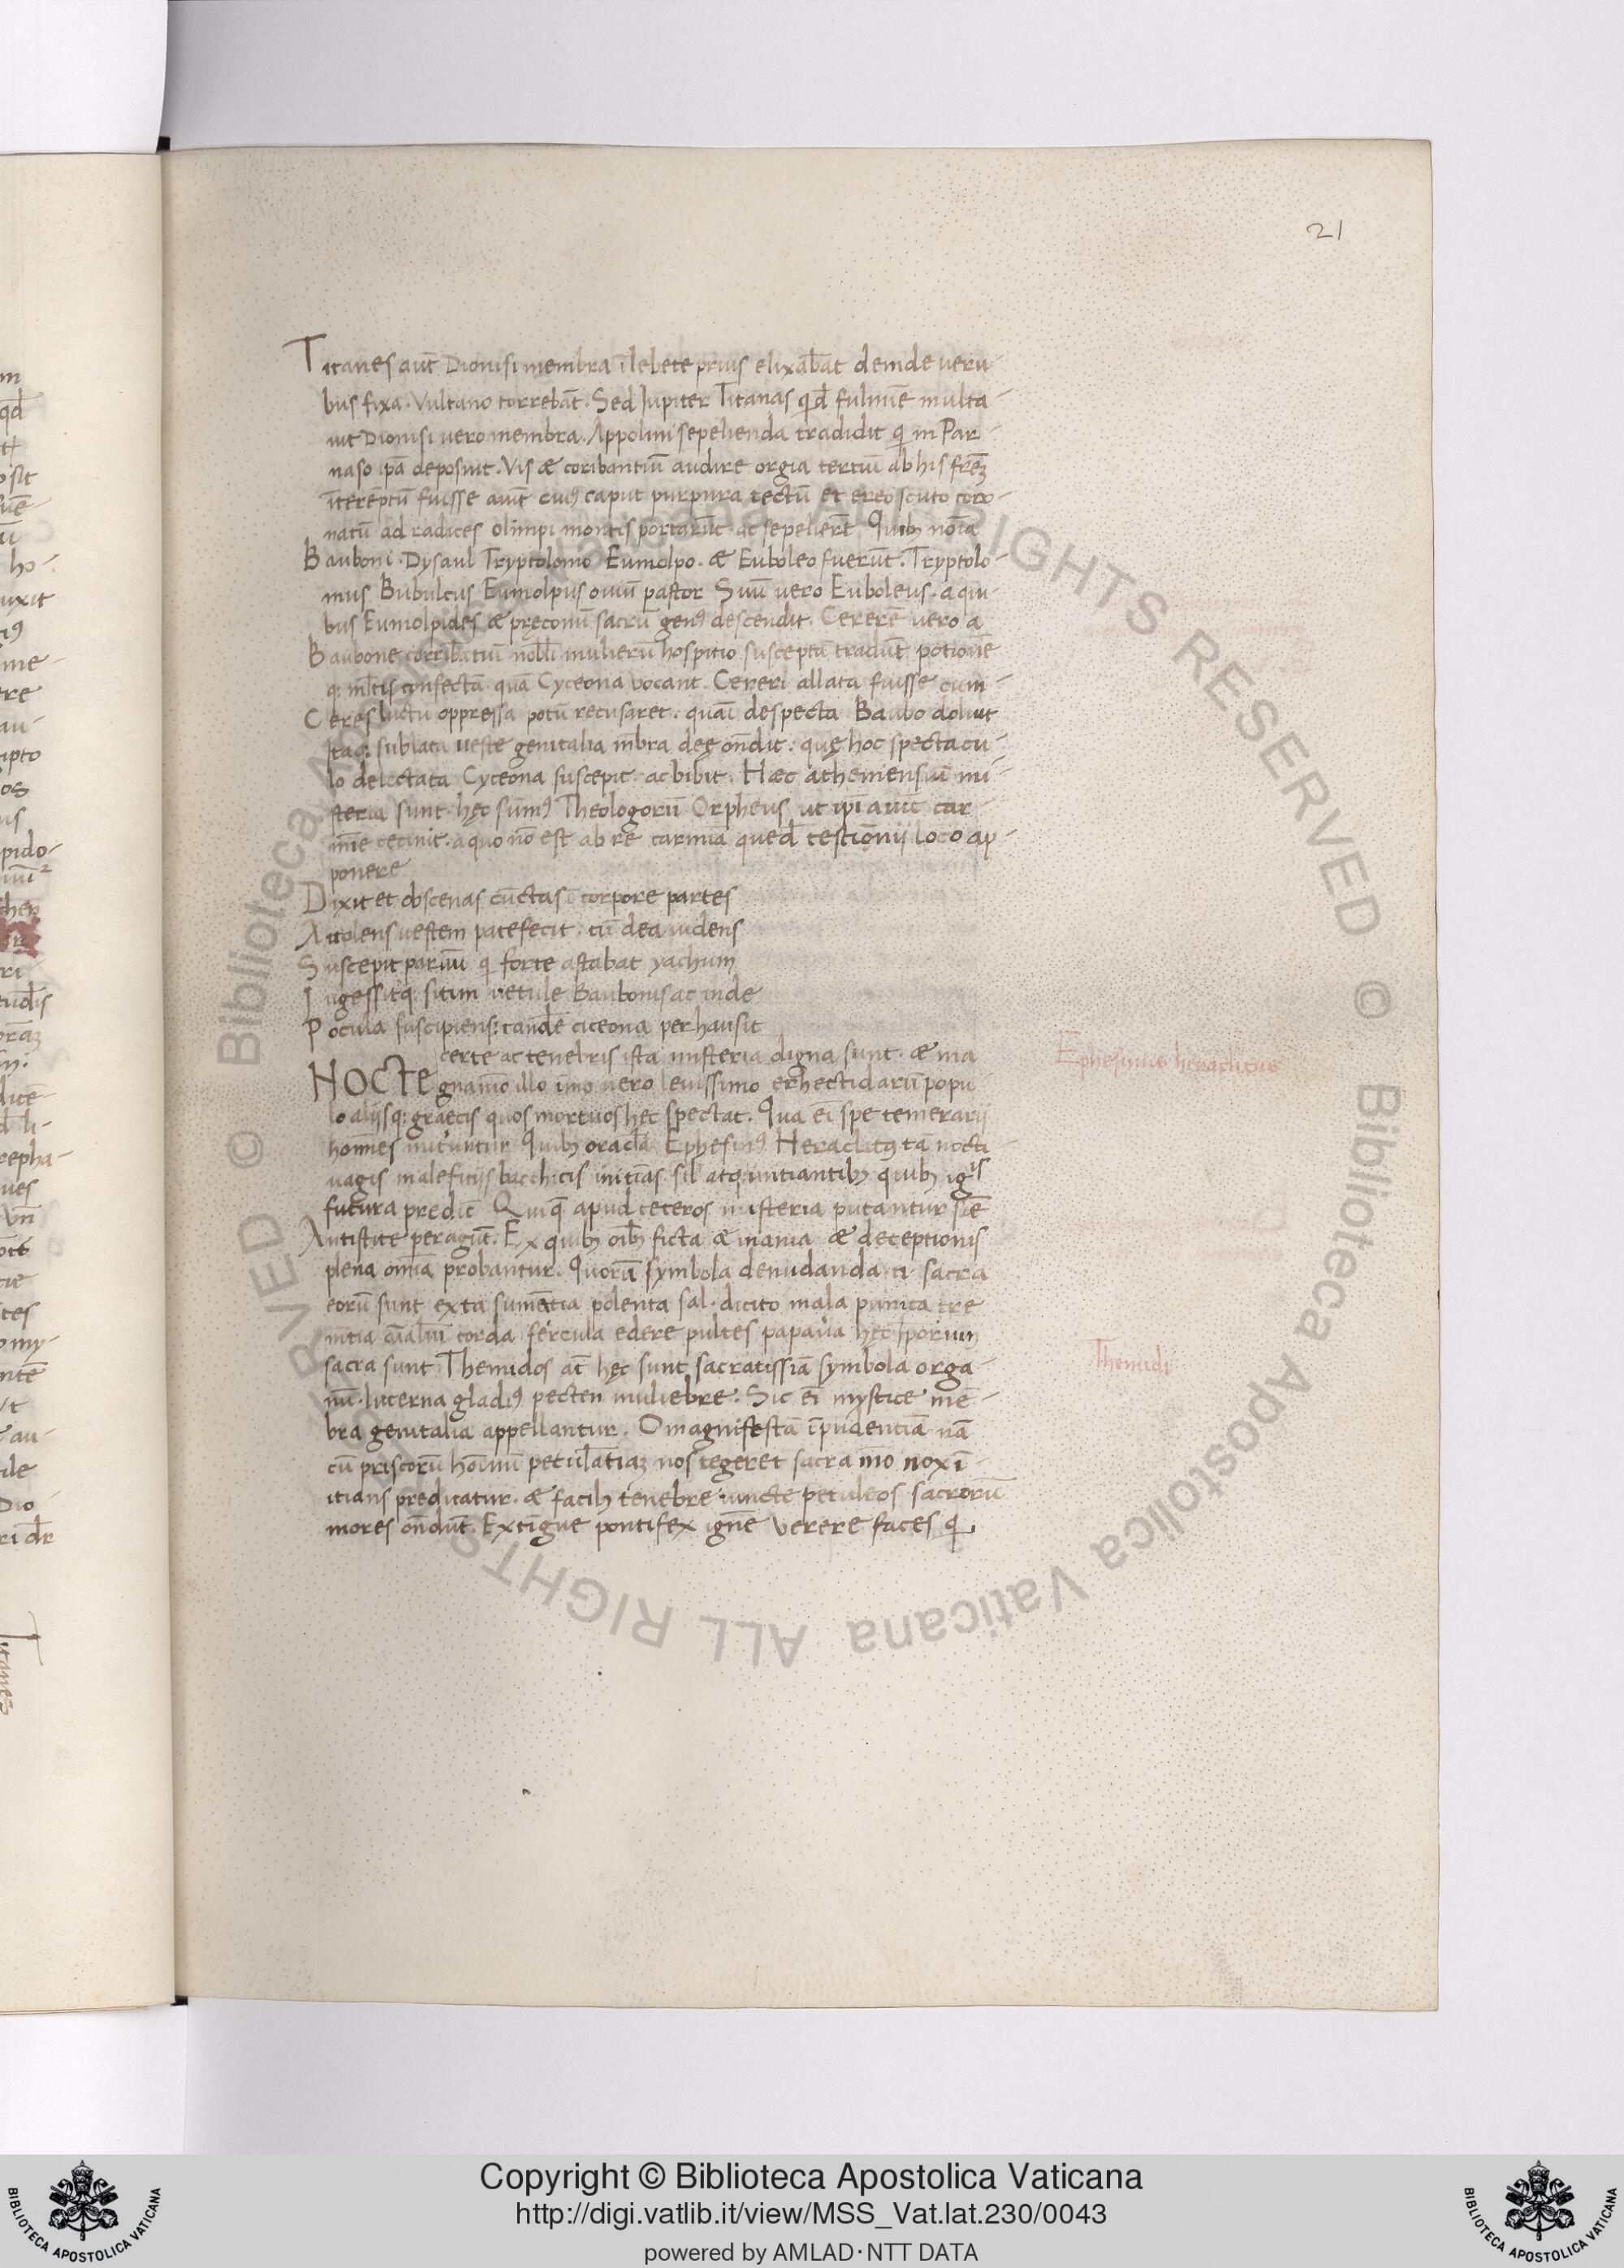 21
Titanes aut̄ Dionisi membra ī lebete prius elixab̄at deinde veru-
bus fixa. Vulcano torrebāt. Sed Iupiter Titanas qd̄ fulmīe multa-
uit Dionisi vero membra. Appolini sepelienda tradidit q in Par-
naso ip̄a deposuit. Vis & coribantiū audire orgia tertiū ab his frēꝫ
īterēptū fuisse aiūt cuiꝰ caput purpura tectū et ereo scuto coro-
natū ad radices olimpi montis portarūt ac sepelierēt Quibꝫ noīa
Bauboni. Dysaul Tryptolomo Eumolpo. & Euboleo fuerūt. Tryptolo-
mus Bubulcus Eumolpus ouiū pastor Suū vero Euboleus. a qui-
bus Eumolpides & pręconū sacrū genꝰ descendit. Cererē vero a
Baubone corribātiū nobli mulierū hospitio susceptā tradūt potionē
qꝫ ml̄tis confectā quā Cyceona vocant. Cereri allata fuisse cum-
Ceres luctu oppressa potū recusaret. quāi despecta Baubo doluit
Itaqꝫ sublata ueste genitalia mb̄ra deę on̄dit. quę hoc spectacu-
lo delectata Cyceona suscepit ac bibit. Hæc atheniensiū mi-
steria sunt. hęc sum̄ꝰ Theologorū Orpheus ut ip̄i aiūt car-
mīe cecinit. a quo nō est ab re carmīa quedā testimonij loco ap-
ponere
Dixit et obscenas cūctas corpore partes
Attolens uestem patefecit. cū dea uidens
Suscepit paruū q forte astabat yachum
Iugessitqꝫ sitim vetule Baubonis ac inde
Pocula suscipiens: tandē ciceona perhausit
NOCTE certe ac tenebris ista misteria digna sunt. & ma
gnaīo illo īmo vero leuissimo erhectidarū popu-
lo alijsqꝫ graecis quos mortuos hęc spectat. Qua eī spe temerarij
hoīnes nituntur Quibꝫ oracl̄a Ephesinꝰ Heraclitꝰ tā nocti-
uagis maleficijs bacchicis initiās. sil̄ atqꝫ initiantibꝫ quibꝫ igis
futura predic̄ Quiqꝫ apud ceteros misteria putantur siē
Antistite peragūt. Ex quibꝫ oībꝫ ficta & inania & deceptionis
plena omīa probantur. Quorū symbola denudanda tī sacra
eorū sunt exta sumētia polenta sal. dicito mala punica tre
corda fercula edere pultes papaūa hęc Iporium
sacra sunt Themidos at̄ hęc sunt sacratissīa symbola orga-
nū. lucerna gladiꝰ pecten muliebre. Sic eī mystice mē-
bra genitalia appellantur. O magnifestā īpudentiā nā
cū priscorū hoīnū petulātiaꝫ nos tegeret sacra īmo nox ī-
itians predicatur. & facibꝫ tenebre uincte petuleos sacrorū
mores on̄dūt. Extīgue pontifex ignē verere faces q
Ephesinus heraclitus
Themidi
Copyright © Biblioteca Apostolica Vaticana
http://digi.vatlib.it/view/MSS_Vat.lat.230/0043
powered by AMLAD·NTT DATA
BIBLIOTECA APOSTOLICA VATICANA
BIBLIOTECA APOSTOLICA VATICANA
© Biblioteca Apostolica Vaticana ALL RIGHTS RESERVED © Biblioteca Apostolica Vaticana ALL RIGHTS RESERVED